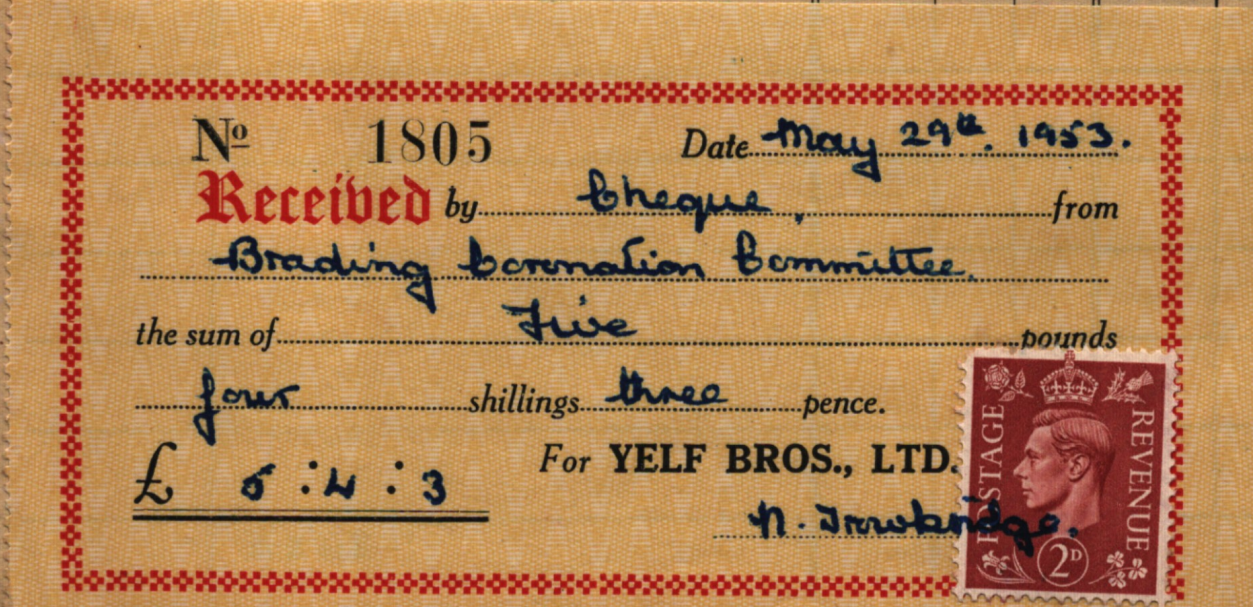 Nº 1805 Date May 29th. 1953.
Received by Cheque, from
Brading Coronation Committee.
the sum of Five pounds
four shillings three pence.
£ 5 : 4 : 3 For YELF BROS., LTD.
N. Trowbridge.
POSTAGE REVENUE
2D